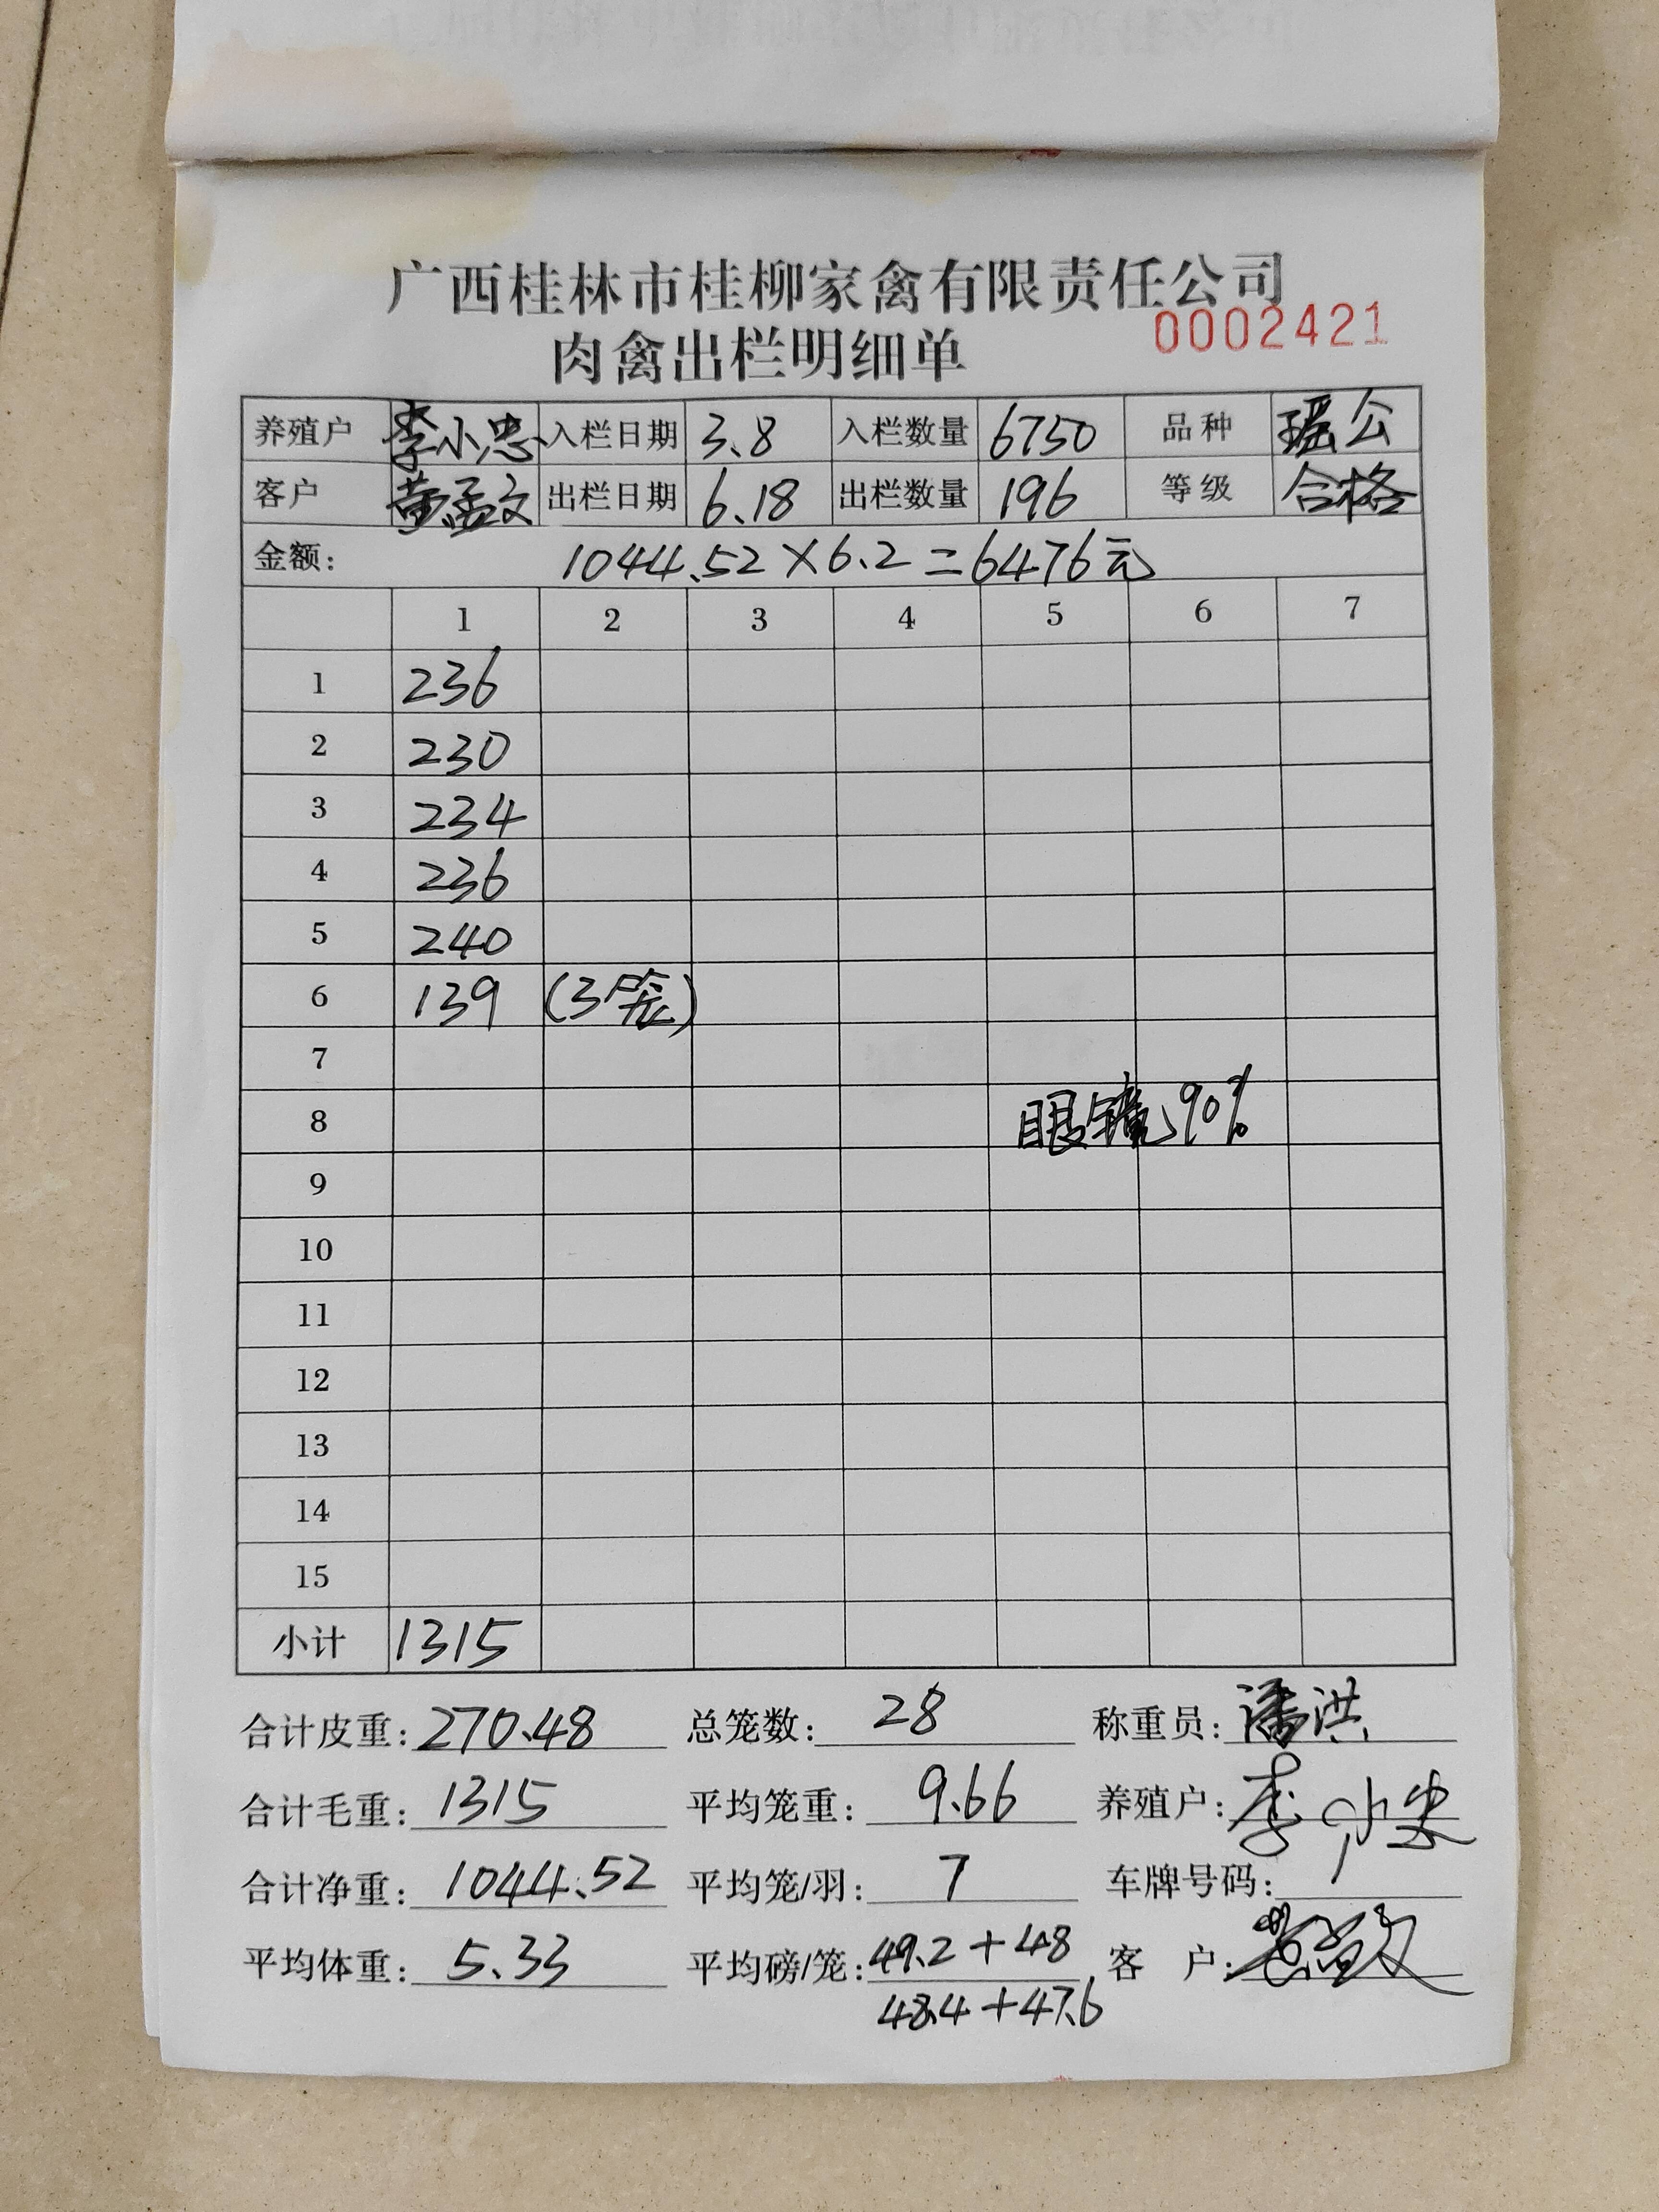 广西桂林市桂柳家禽有限责任公司
肉禽出栏明细单 0002421
养殖户 李小忠 入栏日期 3.8 入栏数量 6750 品种 瑶公
客户 黄孟文 出栏日期 6.18 出栏数量 196 等级 合格
金额: 1044.52×6.2=6476元
1 2 3 4 5 6 7
1 236
2 230
3 234
4 236
5 240
6 139 (3笼)
7
8 眼镜90%
9
10
11
12
13
14
15
小计 1315
合计皮重: 270.48 总笼数: 28 称重员: 潘洪
合计毛重: 1315 平均笼重: 9.66 养殖户: 李小忠
合计净重: 1044.52 平均笼/羽: 7 车牌号码:
平均体重: 5.33 平均磅/笼: 49.2+48 客 户: 黄孟文
48.4+47.6